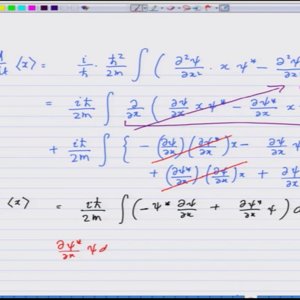 d/dt ⟨x⟩ = i/ħ · ħ²/2m ∫ ( ∂²ψ/∂x² x ψ* − ∂²ψ*/∂x²
= iħ/2m ∫ ∂/∂x ( ∂ψ/∂x x ψ* − ∂ψ*/∂x x
+ iħ/2m ∫ { − (∂ψ/∂x)(∂ψ*/∂x) x − ∂ψ/∂x
+ (∂ψ*/∂x)(∂ψ/∂x) x + ∂ψ*/∂x
⟨x⟩ = iħ/2m ∫ ( −ψ* ∂ψ/∂x + ∂ψ*/∂x ψ ) d
∂ψ*/∂x ψ d